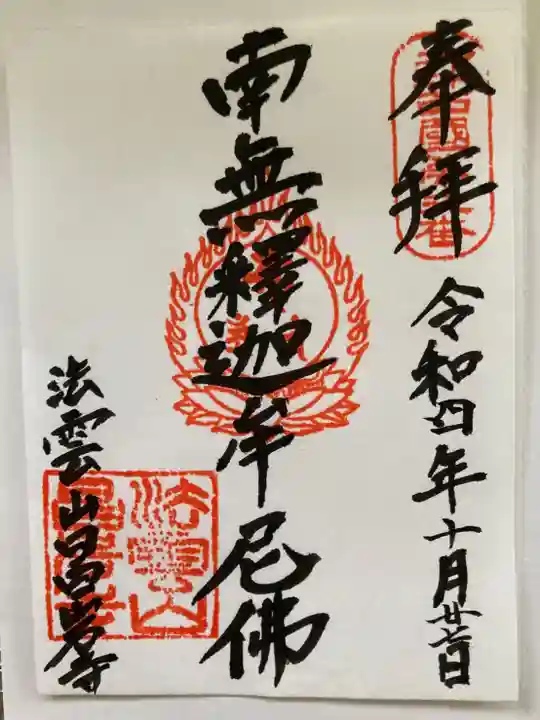 奉拝
令和四年十月廿六日
南無釋迦牟尼佛
法雲山昌岩寺